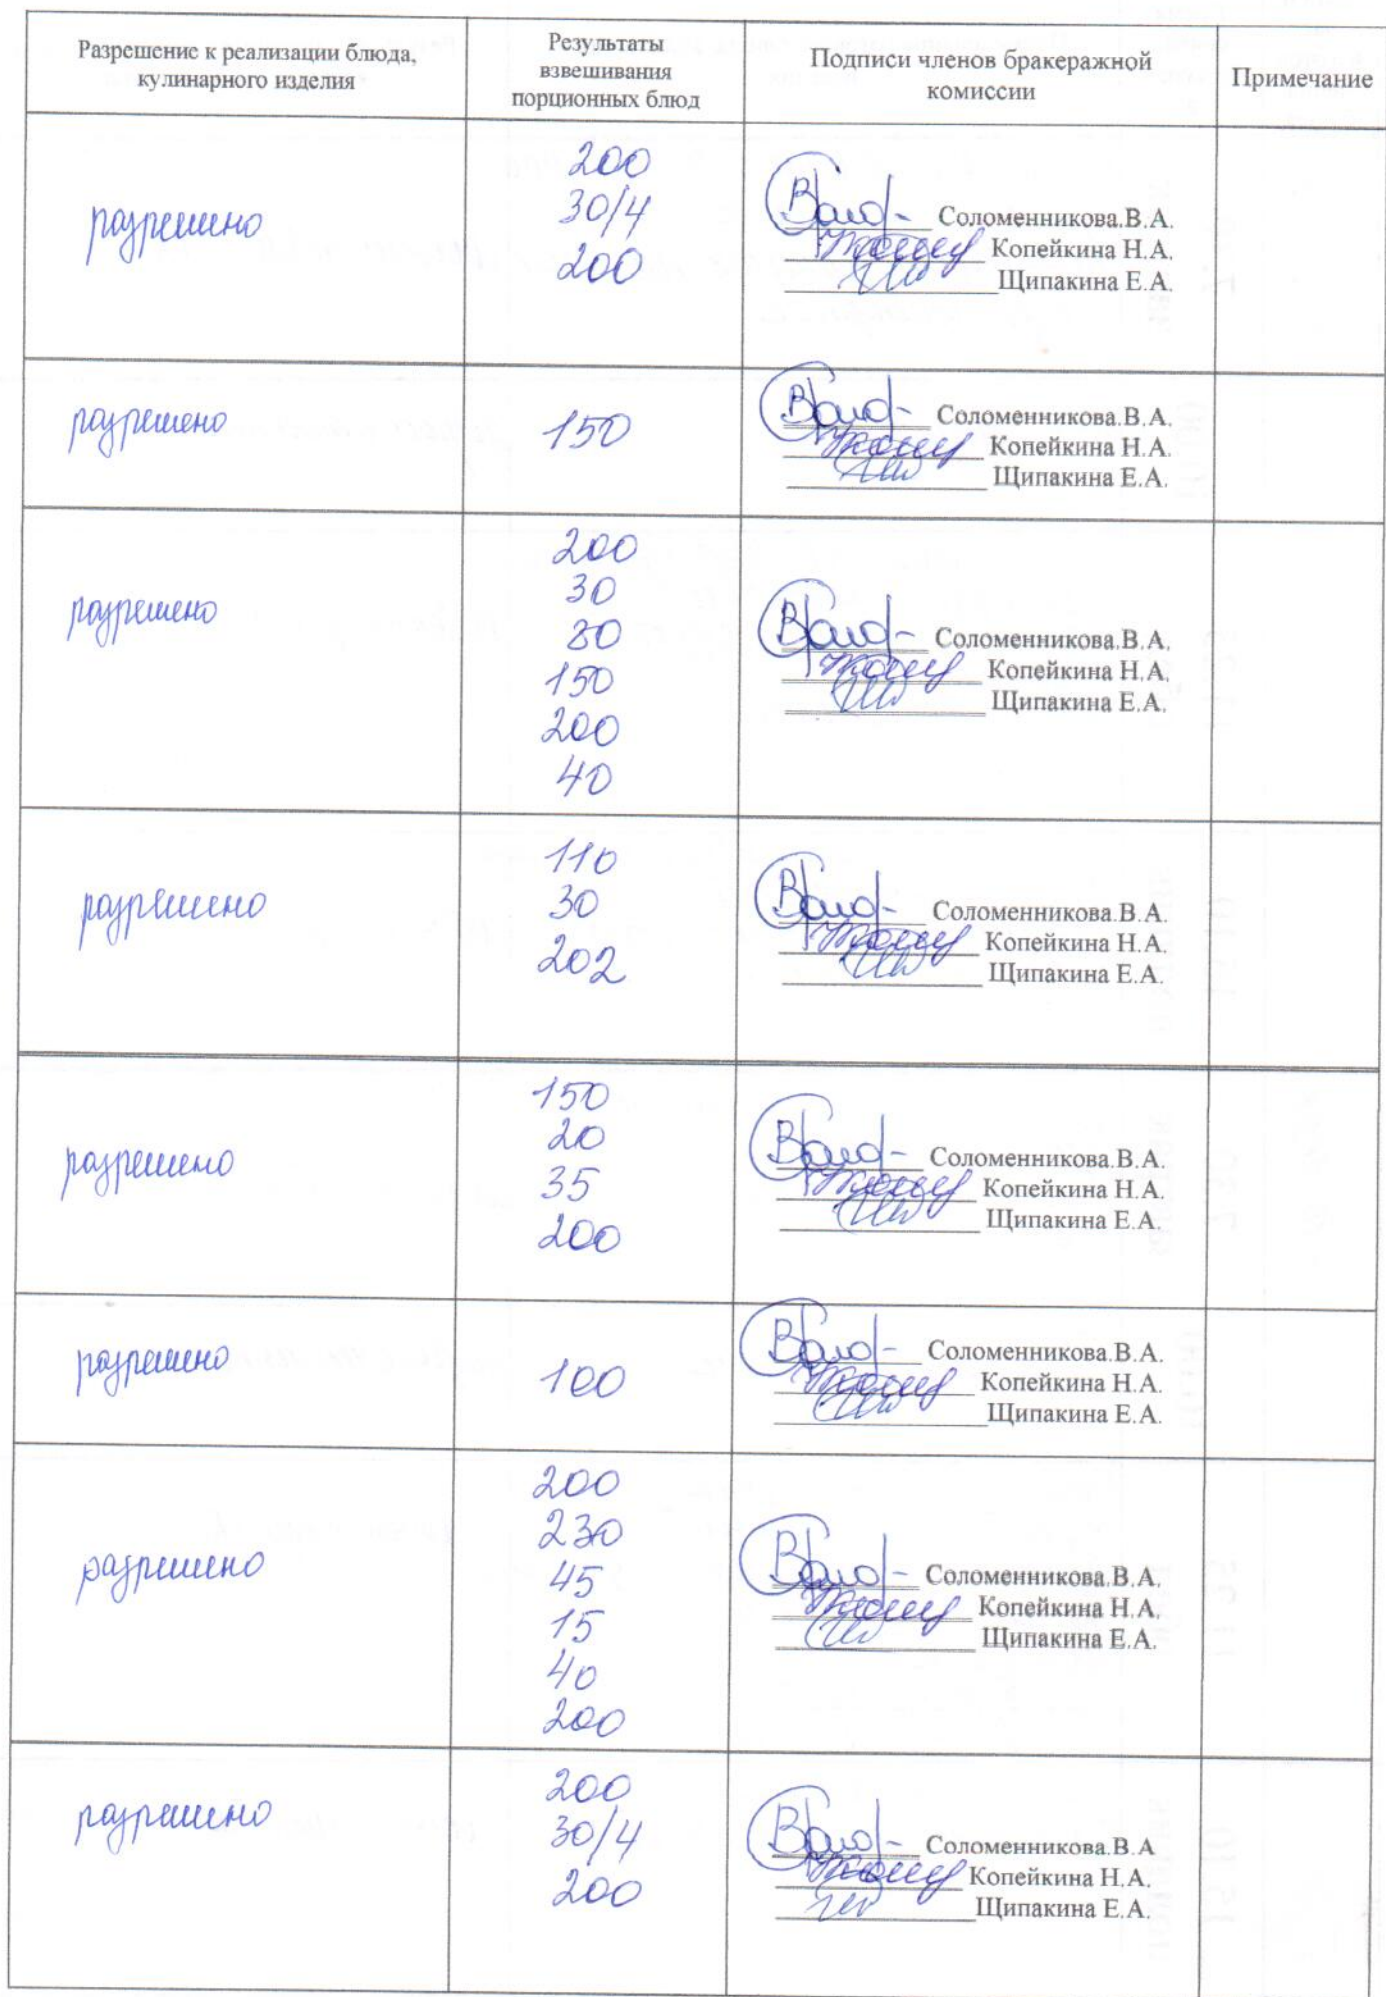 Разрешение к реализации блюда,
кулинарного изделия
Результаты
взвешивания
порционных блюд
Подписи членов бракеражной
комиссии
Примечание
разрешено
200
30/4
200
Соломенникова.В.А.
Копейкина Н.А.
Щипакина Е.А.
разрешено
150
Соломенникова.В.А.
Копейкина Н.А.
Щипакина Е.А.
разрешено
200
30
80
150
200
40
Соломенникова.В.А.
Копейкина Н.А.
Щипакина Е.А.
разрешено
110
30
202
Соломенникова.В.А.
Копейкина Н.А.
Щипакина Е.А.
разрешено
150
20
35
200
Соломенникова.В.А.
Копейкина Н.А.
Щипакина Е.А.
разрешено
100
Соломенникова.В.А.
Копейкина Н.А.
Щипакина Е.А.
разрешено
200
230
45
15
40
200
Соломенникова.В.А.
Копейкина Н.А.
Щипакина Е.А.
разрешено
200
30/4
200
Соломенникова.В.А
Копейкина Н.А.
Щипакина Е.А.